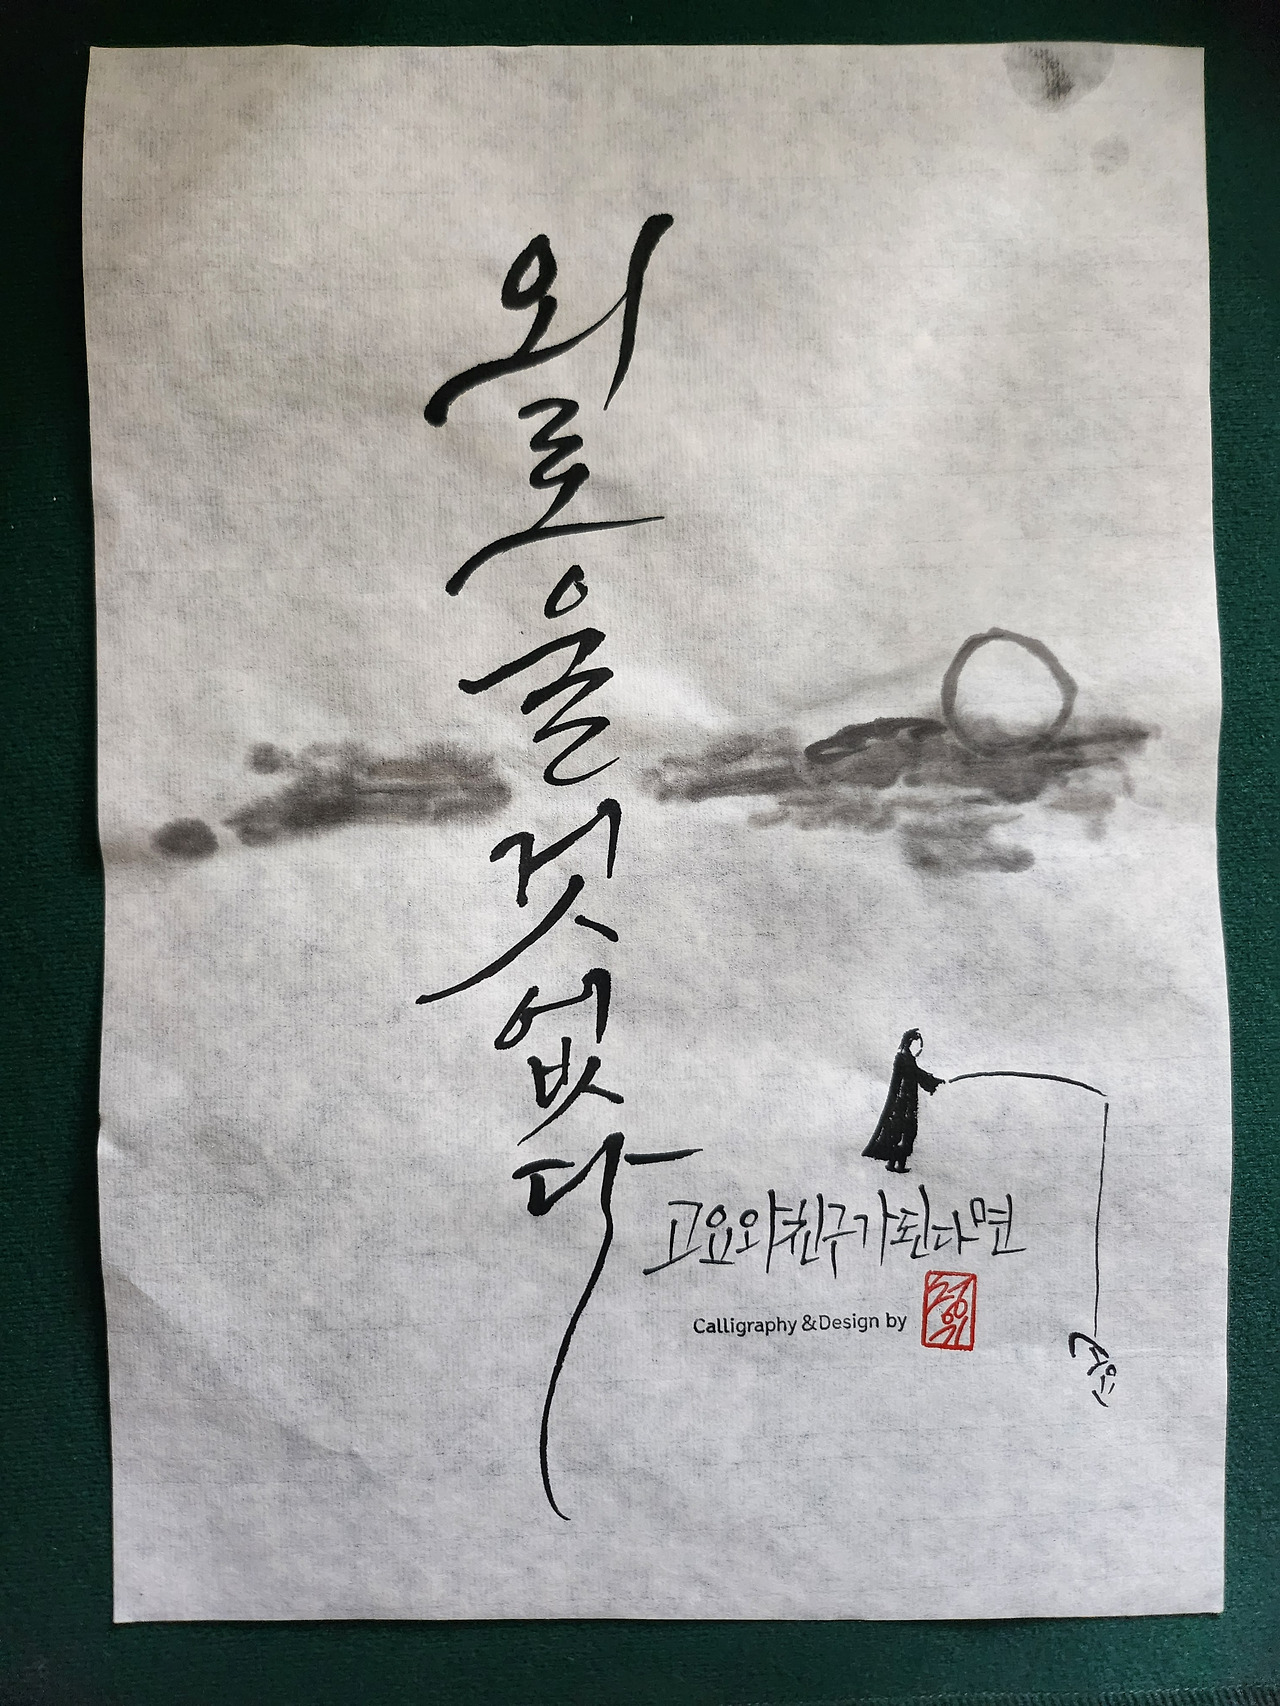 외로울 것 없다
고요와 친구가 된다면
Calligraphy & Design by